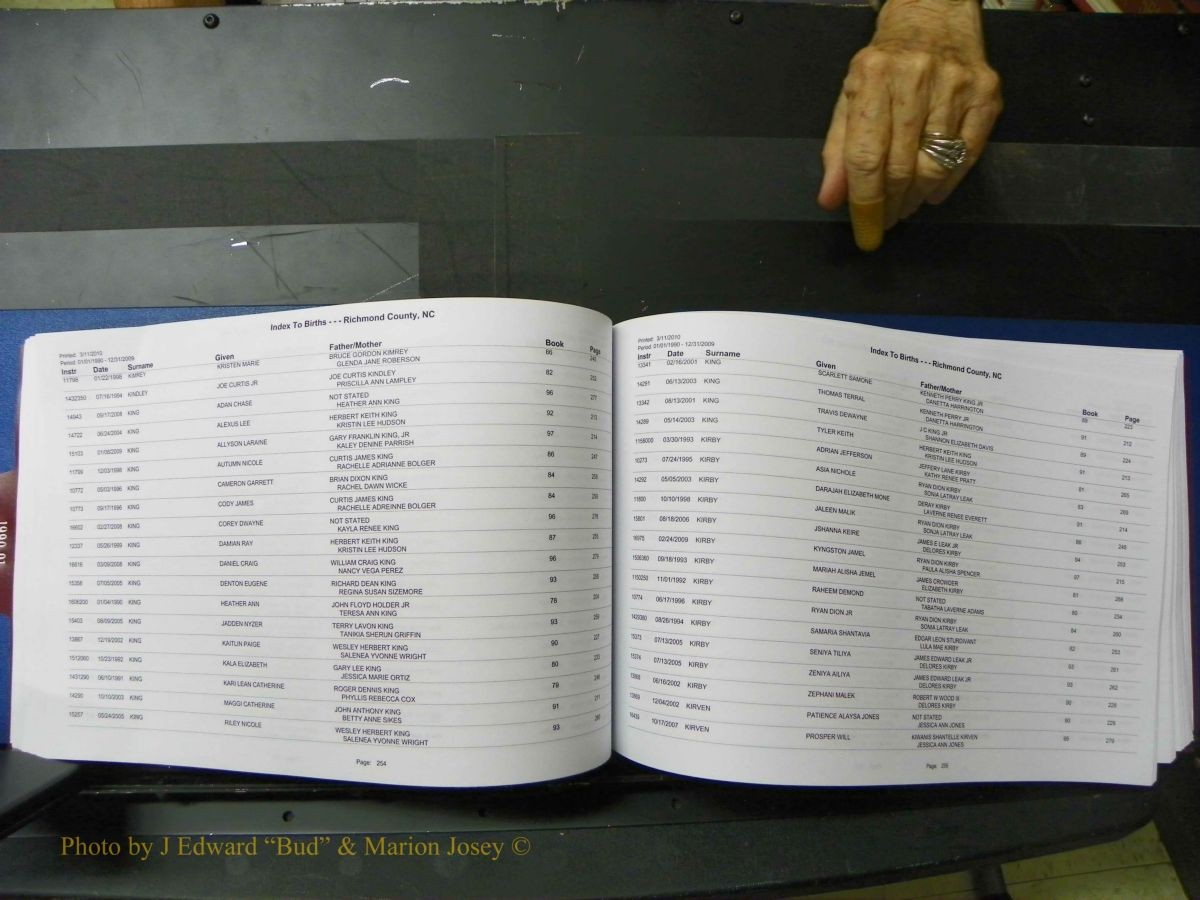 Index To Births - - - Richmond County, NC
Printed: 3/11/2010
Period: 01/01/1990 - 12/31/2009
Instr Date Surname Given Father/Mother Book Page
11798 01/22/1998 KIMREY KRISTEN MARIE BRUCE GORDON KIMREY 86
GLENDA JANE ROBERSON
1432350 07/16/1994 KINDLEY JOE CURTIS JR JOE CURTIS KINDLEY 82
PRISCILLA ANN LAMPLEY
14943 09/17/2008 KING ADAN CHASE NOT STATED 96 277
HEATHER ANN KING
14722 06/24/2004 KING ALEXUS LEE HERBERT KEITH KING 92 213
KRISTIN LEE HUDSON
15103 01/08/2009 KING ALLYSON LARAINE GARY FRANKLIN KING, JR 97 214
KALEY DENINE PARRISH
11799 12/03/1998 KING AUTUMN NICOLE CURTIS JAMES KING 86 247
RACHELLE ADRIANNE BOLGER
10772 05/03/1996 KING CAMERON GARRETT BRIAN DIXON KING 84
RACHEL DAWN WICKE
10773 09/17/1996 KING CODY JAMES CURTIS JAMES KING 84
RACHELLE ADREINNE BOLGER
02/27/2008 KING COREY DWAYNE NOT STATED 96
KAYLA RENEE KING
12337 05/26/1999 KING DAMIAN RAY HERBERT KEITH KING 87
KRISTIN LEE HUDSON
16616 03/09/2008 KING DANIEL CRAIG WILLIAM CRAIG KING 96
NANCY VEGA PEREZ
15358 07/05/2005 KING DENTON EUGENE RICHARD DEAN KING 93
REGINA SUSAN SIZEMORE
01/04/1990 KING HEATHER ANN JOHN FLOYD HOLDER JR 78
TERESA ANN KING
15403 08/09/2005 KING JADDEN NYZER TERRY LAVON KING 93
TANIKIA SHERUN GRIFFIN
13887 12/19/2002 KING KAITLIN PAIGE WESLEY HERBERT KING 90
SALENEA YVONNE WRIGHT
1512060 10/23/1992 KING KALA ELIZABETH GARY LEE KING 80
JESSICA MARIE ORTIZ
1431290 06/10/1991 KING KARI LEAN CATHERINE ROGER DENNIS KING 79
PHYLLIS REBECCA COX
14290 10/10/2003 KING MAGGI CATHERINE JOHN ANTHONY KING 91
BETTY ANNE SIKES
15257 05/24/2005 KING RILEY NICOLE WESLEY HERBERT KING 93
SALENEA YVONNE WRIGHT
Page: 254
Index To Births - - - Richmond County, NC
Printed: 3/11/2010
Period: 01/01/1990 - 12/31/2009
Instr Date Surname Given Father/Mother Book Page
13341 02/16/2001 KING SCARLETT SAMONE KENNETH PERRY KING JR 89 223
DANETTA HARRINGTON
14291 06/13/2003 KING THOMAS TERRAL KENNETH PERRY JR 91 212
DANETTA HARRINGTON
13342 08/13/2001 KING TRAVIS DEWAYNE J C KING JR 89 224
SHANNON ELIZABETH DAVIS
14289 05/14/2003 KING TYLER KEITH HERBERT KEITH KING 91 213
KRISTIN LEE HUDSON
1158000 03/30/1993 KIRBY ADRIAN JEFFERSON JEFFERY LANE KIRBY 81 265
KATHY RENEE PRATT
10273 07/24/1995 KIRBY ASIA NICHOLE RYAN DION KIRBY 83 269
SONIA LATRAY LEAK
14292 05/05/2003 KIRBY DARAJAH ELIZABETH MONE DERAY KIRBY 91 214
LAVERNE RENEE EVERETT
11800 10/10/1998 KIRBY JALEEN MALIK RYAN DION KIRBY 86
SONJA LATRAY LEAK
15801 08/18/2006 KIRBY JSHANNA KEIRE JAMES E LEAK JR 94 253
DELORES KIRBY
16975 02/24/2009 KIRBY KYNGSTON JAMEL RYAN DION KIRBY 97 215
PAULA ALISHA SPENCER
1506360 09/18/1993 KIRBY MARIAH ALISHA JEMEL JAMES CROWDER 81
ELIZABETH KIRBY
1150250 11/01/1992 KIRBY RAHEEM DEMOND NOT STATED 80 234
TABATHA LAVERNE ADAMS
10774 06/17/1996 KIRBY RYAN DION JR RYAN DION KIRBY 84 260
SONIA LATRAY LEAK
08/26/1994 KIRBY SAMARIA SHANTAVIA EDGAR LEON STURDIVANT 82 253
LULA MAE KIRBY
15373 07/13/2005 KIRBY SENIYA TILIYA JAMES EDWARD LEAK JR 93 261
DELORES KIRBY
15374 07/13/2005 KIRBY ZENIYA AILIYA JAMES EDWARD LEAK JR 93 262
DELORES KIRBY
13888 06/16/2002 KIRBY ZEPHANI MALEK ROBERT W WOOD III 90 228
DELORES KIRBY
13889 12/04/2002 KIRVEN PATIENCE ALAYSA JONES NOT STATED 90
JESSICA ANN JONES
16439 10/17/2007 KIRVEN PROSPER WILL KIWANIS SHANTELLE KIRVEN 95 279
JESSICA ANN JONES
Page: 255
Photo by J Edward “Bud” & Marion Josey ©